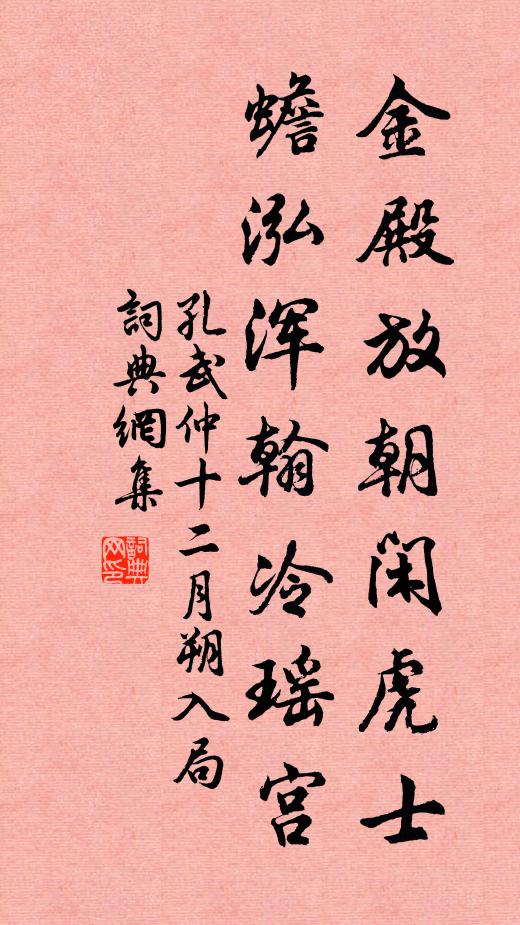 金殿放朝闲虎士
蟾泓浑翰冷瑶宫
孔武仲十二月朔入局
詞典網集
詞典网印